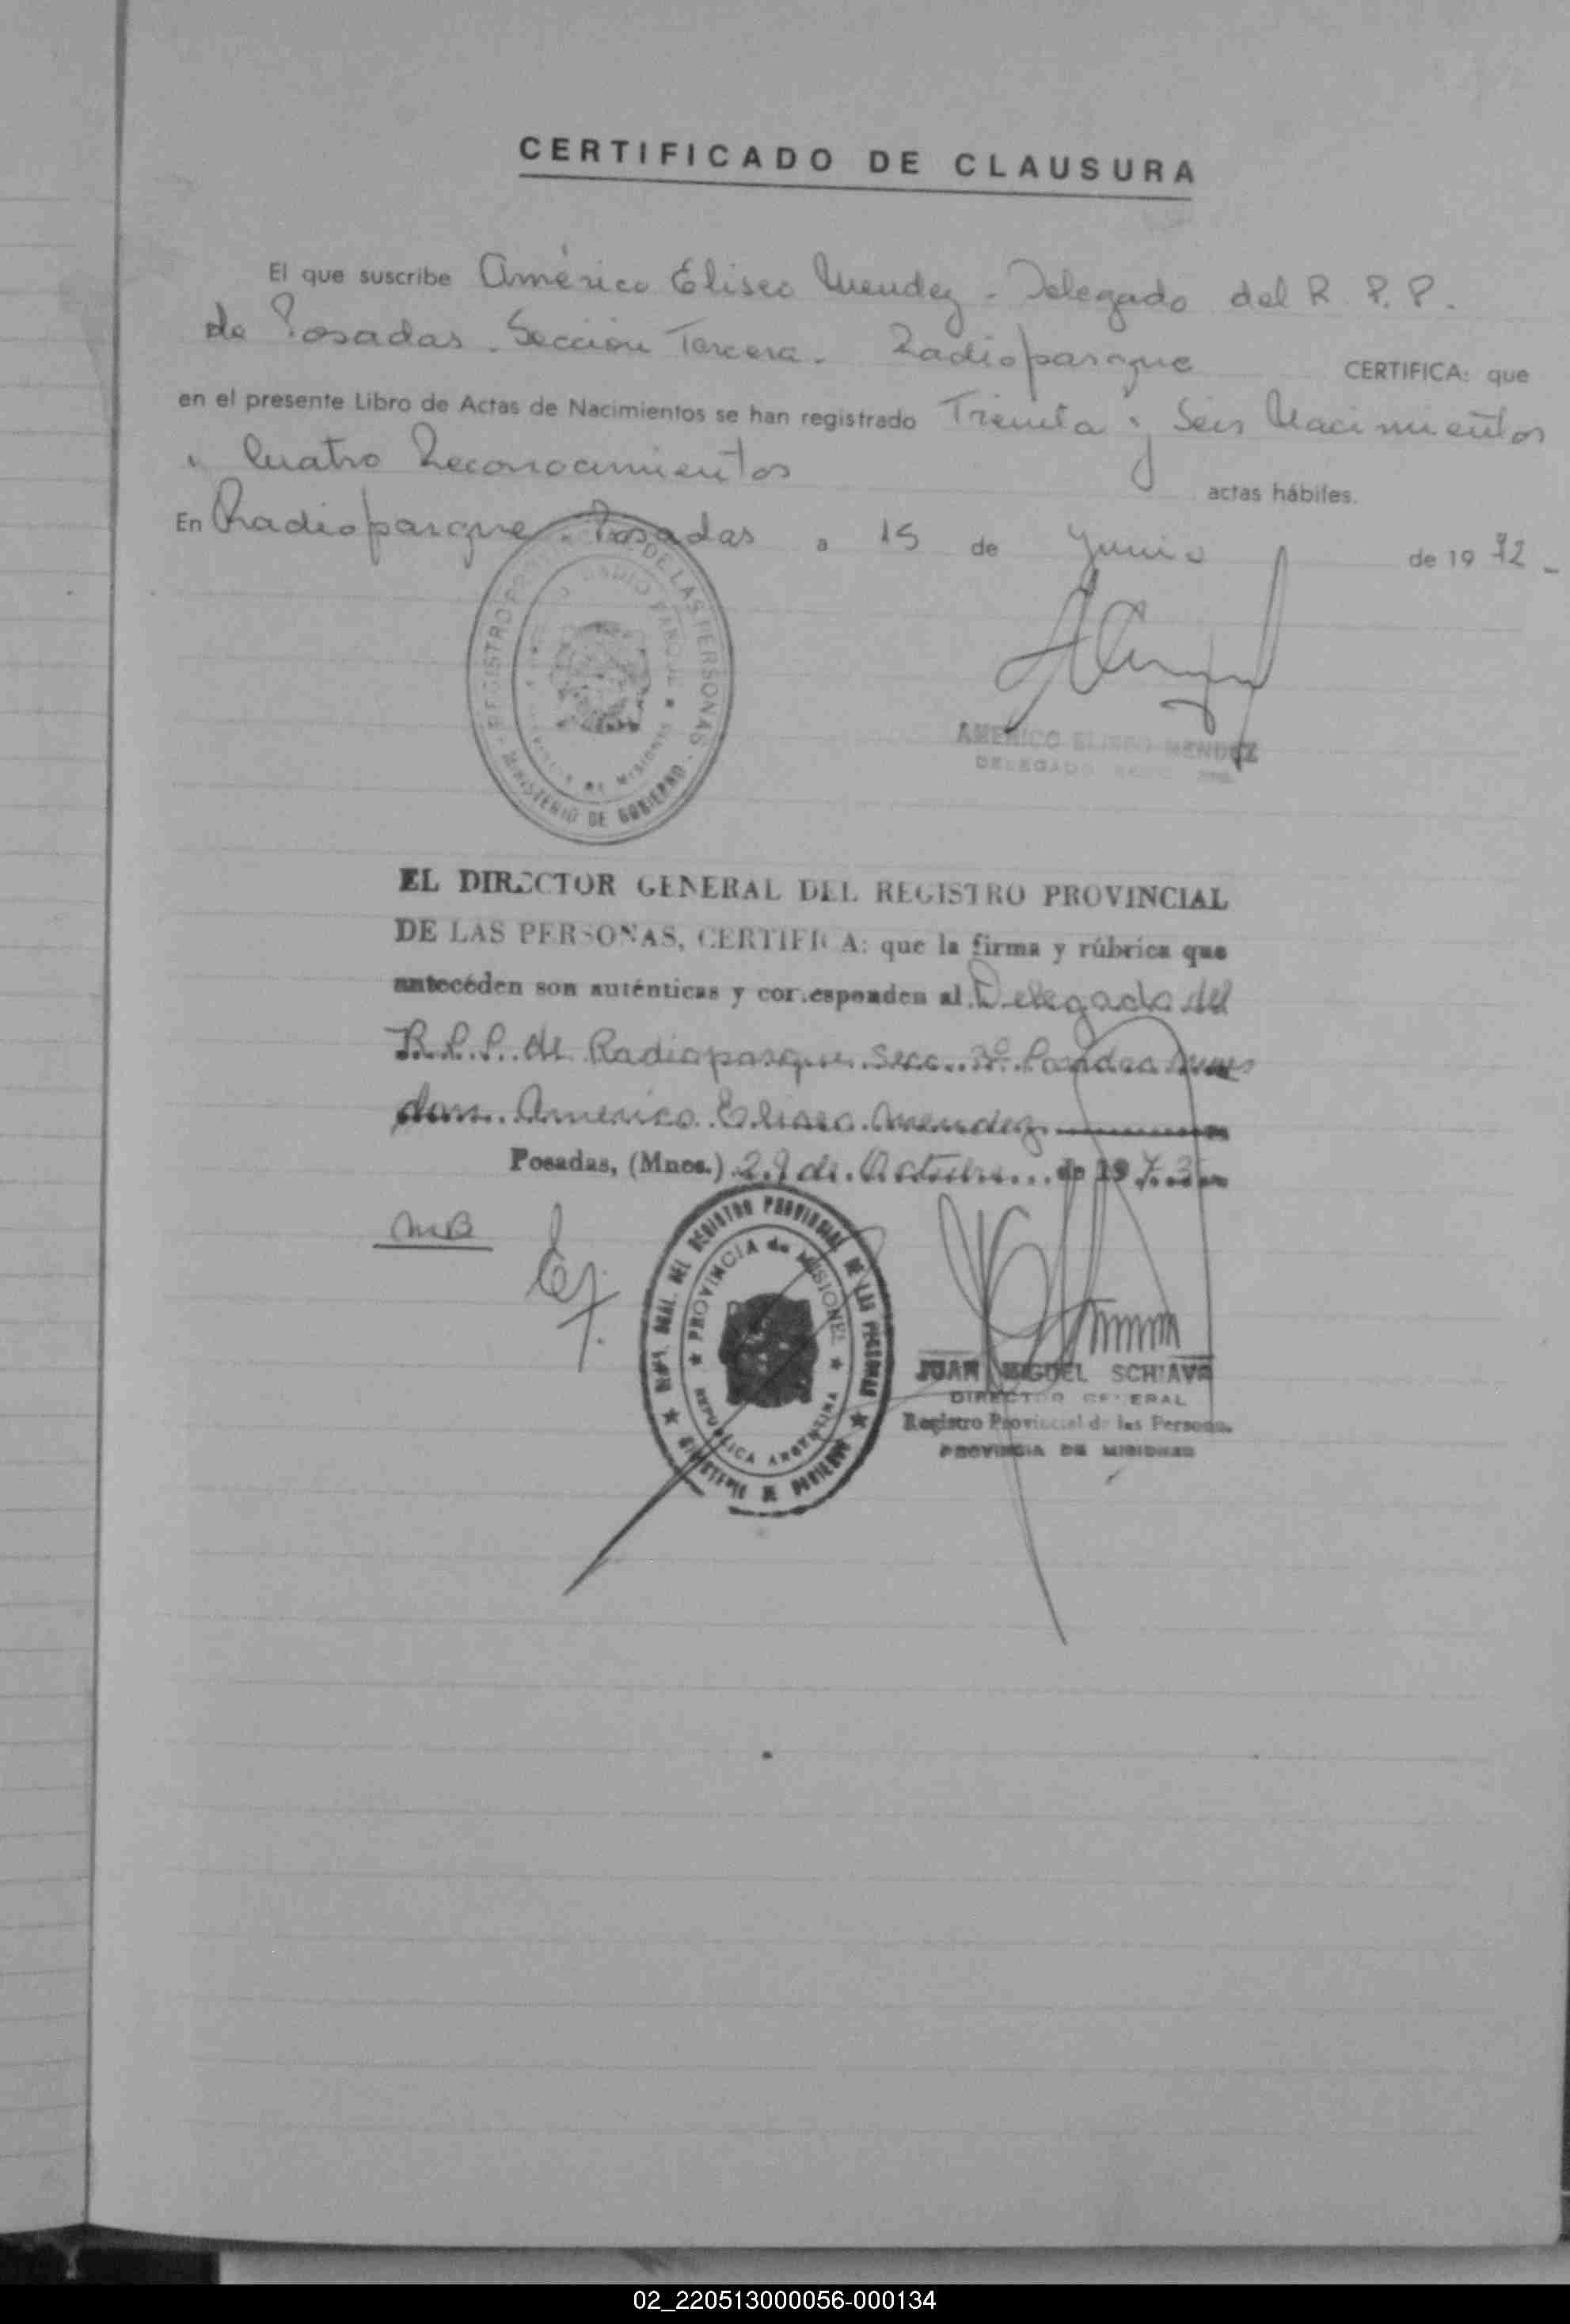 CERTIFICADO DE CLAUSURA
El que suscribe Américo Eliseo Mendez - Delegado del R. P. P.
de Posadas. Sección Tercera. Radioparque CERTIFICA: que
en el presente Libro de Actas de Nacimientos se han registrado Treinta y Seis Nacimientos
y Cuatro Reconocimientos actas hábiles.
En Radioparque - Posadas a 15 de Junio de 19 72 -
REGISTRO DE LAS PERSONAS - MINISTERIO DE GOBIERNO -
RADIO PARQUE DE MISIONES
AMERICO ELISEO MENDEZ
DELEGADO
EL DIRECTOR GENERAL DEL REGISTRO PROVINCIAL
DE LAS PERSONAS, CERTIFICA: que la firma y rúbrica que
anteceden son auténticas y corresponden al Delegado del
R.P.P. de Radioparque Secc. 3º Posadas Mnes
don Americo Eliseo Mendez
Posadas, (Mnes.) 29 de Octubre de 1973
MB
DIR. GRAL. DEL REGISTRO PROVINCIAL DE LAS PERSONAS ★ MINISTERIO DE GOBIERNO ★
PROVINCIA de MISIONES ★ REPUBLICA ARGENTINA ★
JUAN MIGUEL SCHIAVO
DIRECTOR GENERAL
Registro Provincial de las Personas
PROVINCIA DE MISIONES
02_220513000056-000134